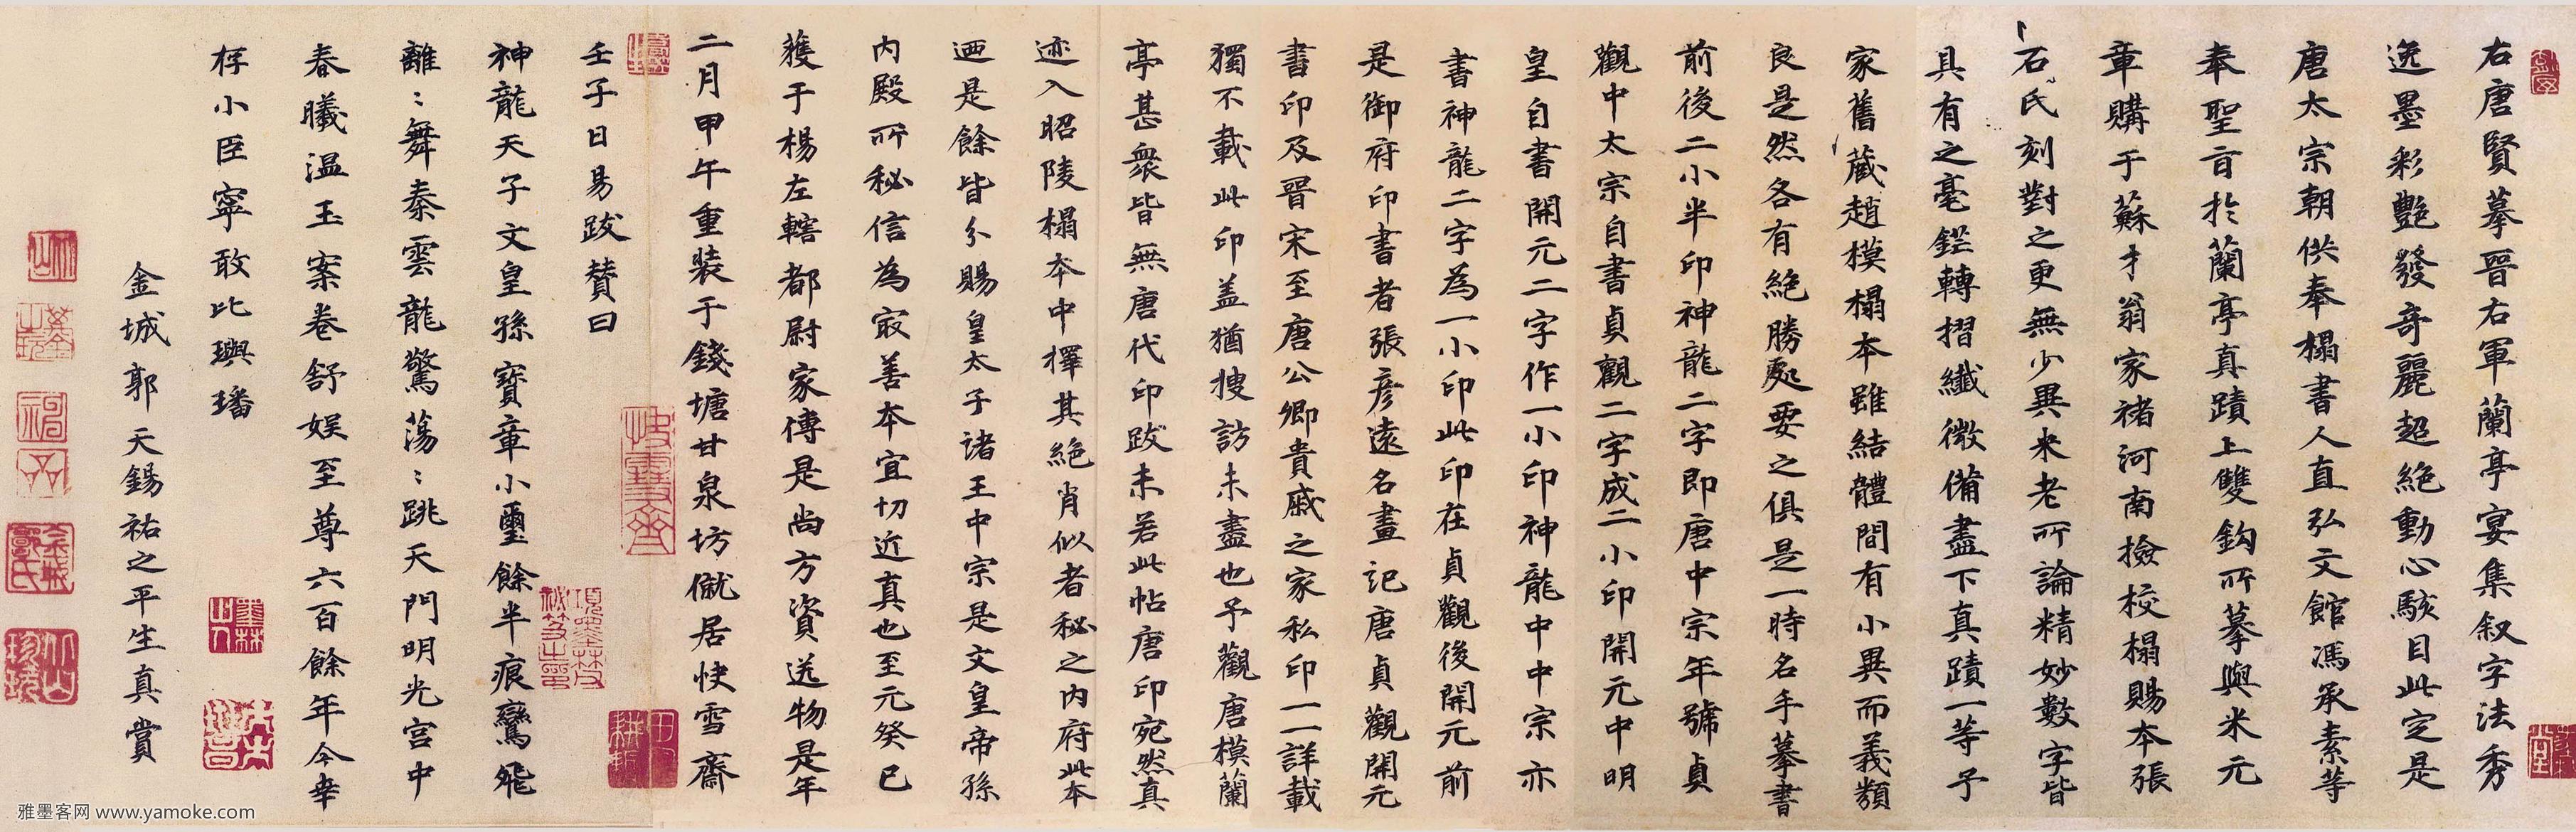 右唐賢摹晉右軍蘭亭宴集叙字法秀
逸墨彩艷發奇麗超絶動心駭目此定是
唐太宗朝供奉榻書人直弘文館馮承素等
奉聖旨於蘭亭真蹟上雙鈎所摹與米元
章購于蘇才翁家褚河南撿校榻賜本張
石氏刻對之更無少異米老所論精妙數字皆
具有之毫鋩轉摺纖微備盡下真蹟一等予
家舊藏趙模榻本雖結體間有小異而義類
良是然各有絶勝處要之俱是一時名手摹書
前後二小半印神龍二字即唐中宗年號貞
觀中太宗自書貞觀二字成二小印開元中明
皇自書開元二字作一小印神龍中中宗亦
書神龍二字為一小印此印在貞觀後開元前
是御府印書者張彦遠名畫記唐貞觀開元
書印及晉宋至唐公卿貴戚之家私印一一詳載
獨不載此印盖猶搜訪未盡也予觀唐模蘭
亭甚衆皆無唐代印跋未若此帖唐印宛然真
迹入昭陵榻本中擇其絶肖似者秘之内府此本
迺是餘皆分賜皇太子諸王中宗是文皇帝孫
内殿所秘信為㝡善本宜切近真也至元癸巳
獲于楊左轄都尉家傳是尚方資送物是年
二月甲午重装于錢塘甘泉坊僦居快雪齋
壬子日易跋賛曰
神龍天子文皇孫寳章小璽餘半痕鸞飛
離〻舞秦雲龍驚蕩〻跳天門明光宫中
春曦温玉案卷舒娱至尊六百餘年今幸
存小臣寧敢比璵璠
金城郭天錫祐之平生真賞
雅墨客网 www.yamoke.com